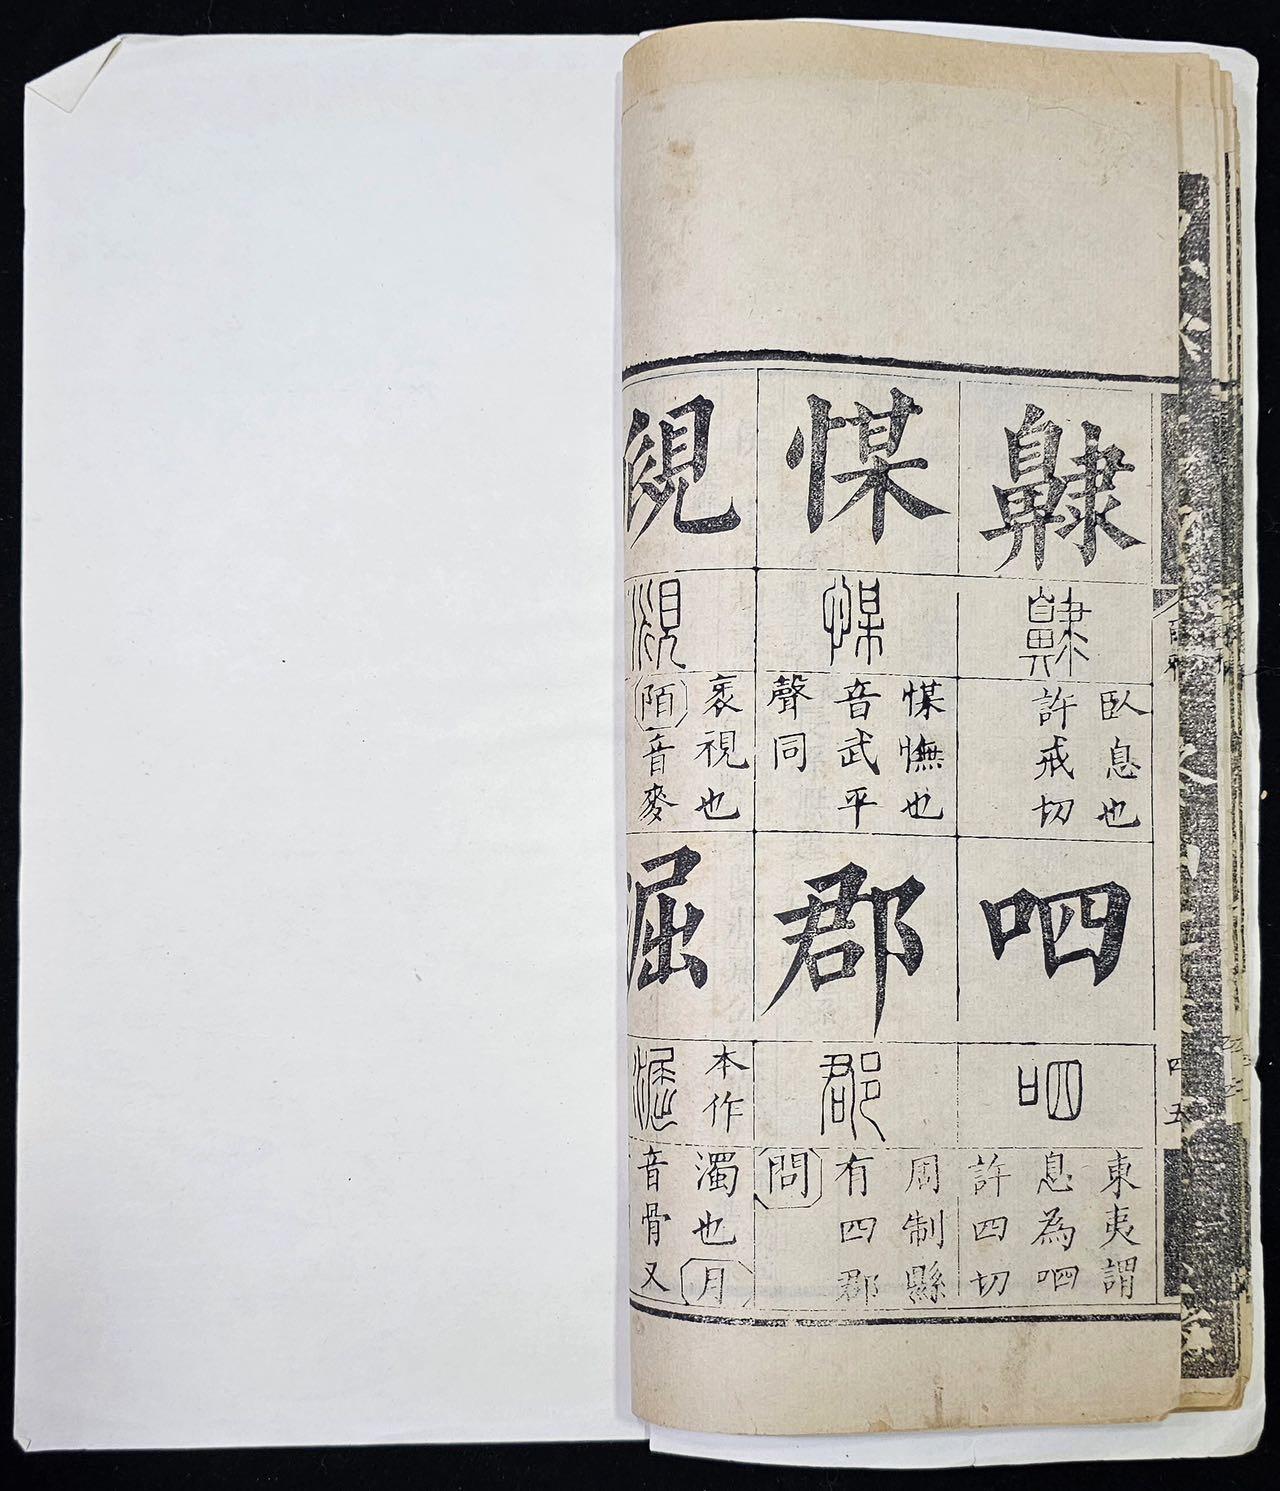 齂
齂
臥息也
許戒切
呬
呬
東夷謂
息為呬
許四切
憮也
音武平
聲同
郡
郡
周制縣
有四郡
問
覛
覛
衺視也
陌音麥
淈
本作
淈
濁也月
音骨又
四五